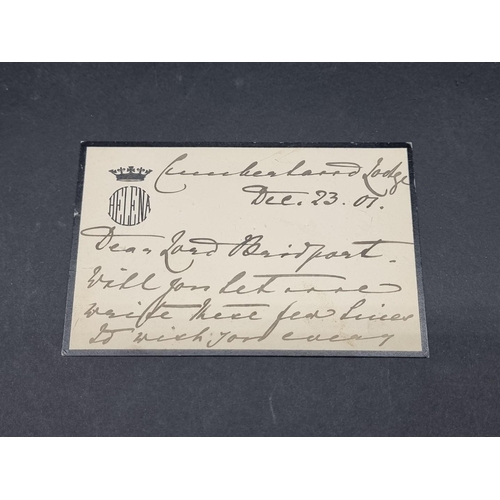 Cumberland Lodge
Dec. 23. 01.
HELENA
Dear Lord Bridport.
Will you let me
write these few lines
to wish you every